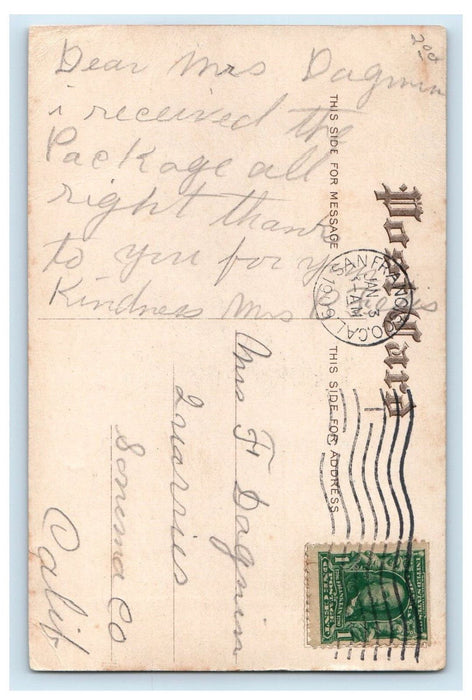 200
Dear Mrs Dagmin
i received the
Package all
right thanks
to you for your
Kindness Mrs
Post Card
THIS SIDE FOR MESSAGE
THIS SIDE FOR ADDRESS
SAN FRANCISCO, CAL.
JAN 3
AM
Mrs F Dagmin
Quarries
Sonoma Co
Calif
1
1